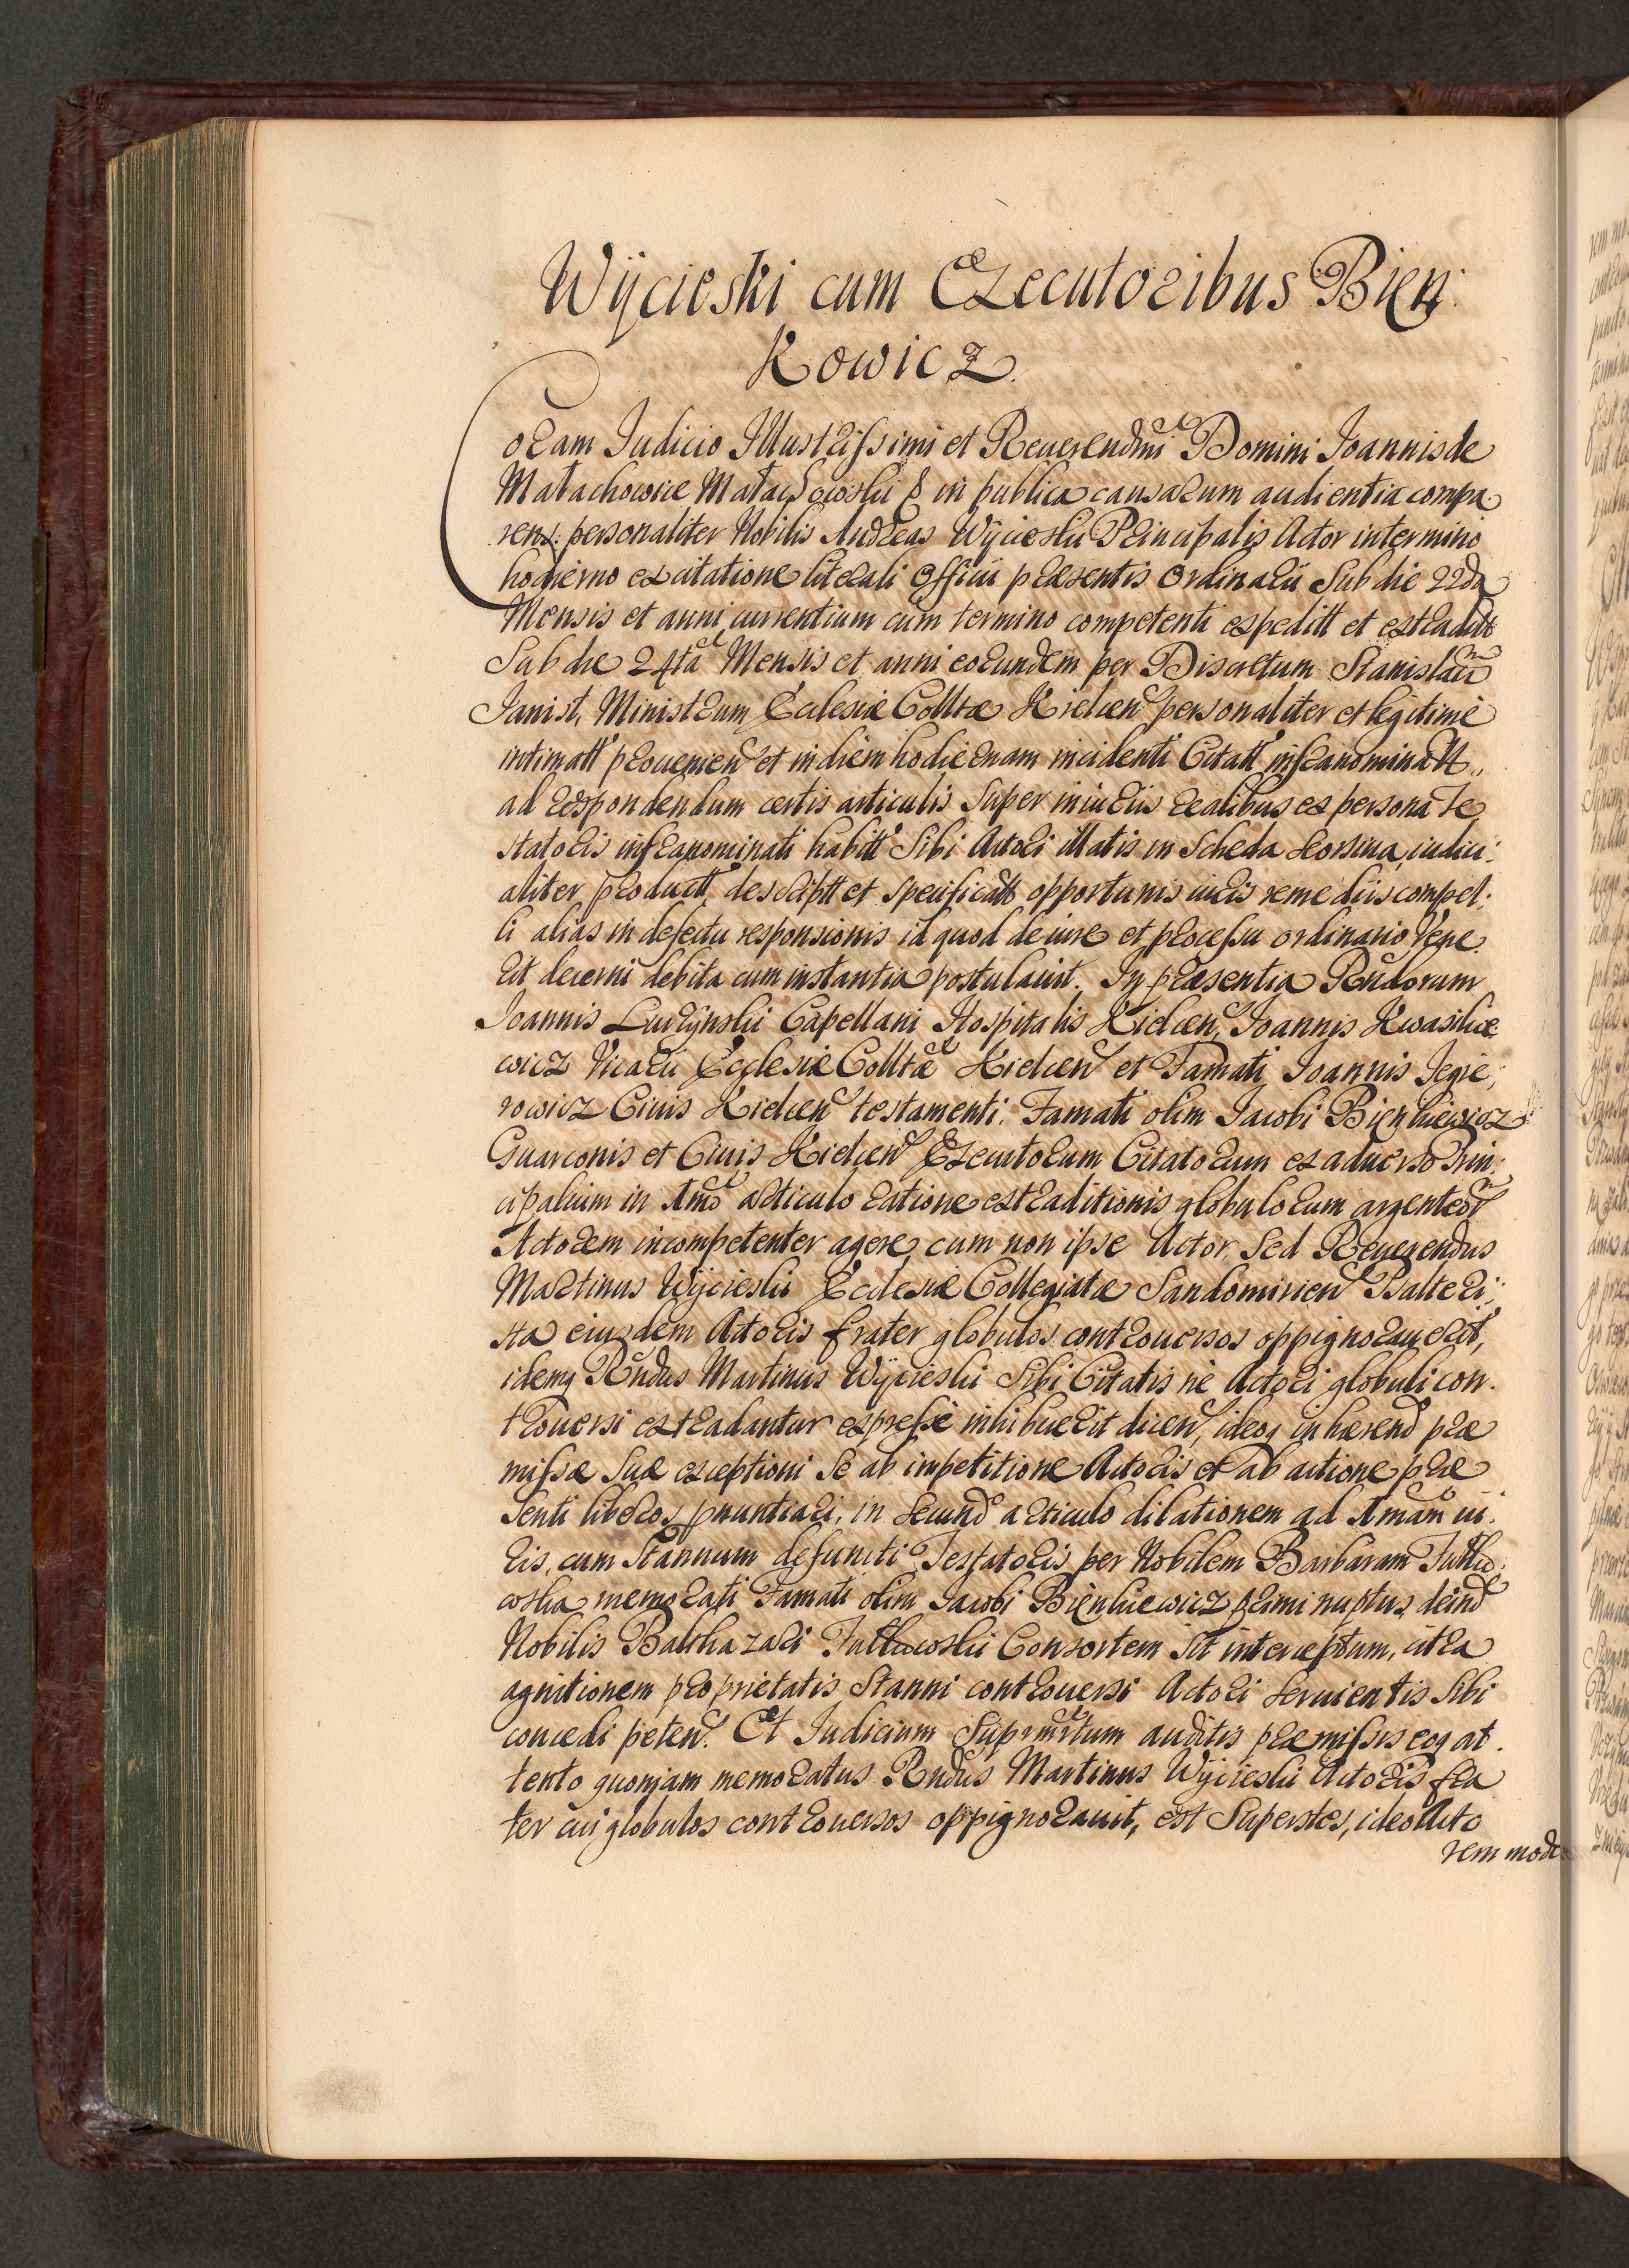 Wÿcieski cum Executoribus Bień:
Kowicz.
Coram Judicio Illustrissimi et Reuerendmi Domini Joannis de
Małachowice Małachowski & in publica causarum audientia compa
rens personaliter Nobilis Andreas Wÿcieski Principalis Actor in termino
hodierno ex citatione literali Officii præsentis Ordinarii Sub die 22da
Mensis et anni currentium cum termino competenti expeditt et extraditt
Sub die 24ta Mensis et anni eorundem per Discretum Stanislaũ
Janist, Ministrum Ecclesiæ Colltæ Kielcen personaliter et legitime
intimatt prouenien et in diem hodiernam incidenti Citatt infranominatt,,
ad respondendum certis articulis Super iniuriis realibus ex persona Te
statoris infranominati habitt Sibi Actori illatis in Scheda Seorsiua, iudici:
aliter productt, descriptt et specificatt opportunis iuris remediis compel:
li alias in defectu responsionis id quod de iure et processu ordinario Vene
rit decerni debita cum instantia postulauit. In præsentia Rndorum
Joannis Lurzÿnski Capellani Hospitalis Kielcen, Joannis Kwasnie
wicz Vicarii Ecclesiæ Colltæ Kielcen et Famati Joannis Jegie:
rowicz Ciuis Kielcen testamenti Famati olim Jacobi Bieńkiewicz
Guarconis et Ciuis Kielcen Executorum Citatorum ex aduerso Prin:
cipalium in Amo articulo ratione extraditionis globulorum argenteor
Actorem incompetenter agere, cum non ipse Actor, Sed Reuerendus
Martinus Wÿcieski Ecclesiæ Collegiatæ Sandomirien Psalteri:
sta eiusdem Actoris frater globulos controuersos oppignorauerit,
idemq Rndus Martinus Wÿcieski Sibi Citatis ne Actori globuli con:
trouersi extradantur expresse inhibuerit dicen, ideoq inhærend præ
missæ Suæ exceptioni Se ab impetitione Actoris et ab actione præ
senti liberos pnuntiari, in Secund articulo dilationem ad Amam iu:
ris, cum Stannum defuncti Testatoris per Nobilem Barbaram Futko
wska memorati Famati olim Jacobi Bieńkiewicz primi nuptus, deind
Nobilis Balthazari Futkowski Consortem Sit interceptum, citra
agnitionem proprietatis Stanni controuersi Actori Seruientis Sibi
concedi peten. Et Judicium Suprmtum auditis præmissis eoq at:
tento quoniam memoratus Rndus Martinus Wÿcieski Actoris fra
ter cui globulos controuersos oppignorauit, est Superstes, ideo Acto
rem modr